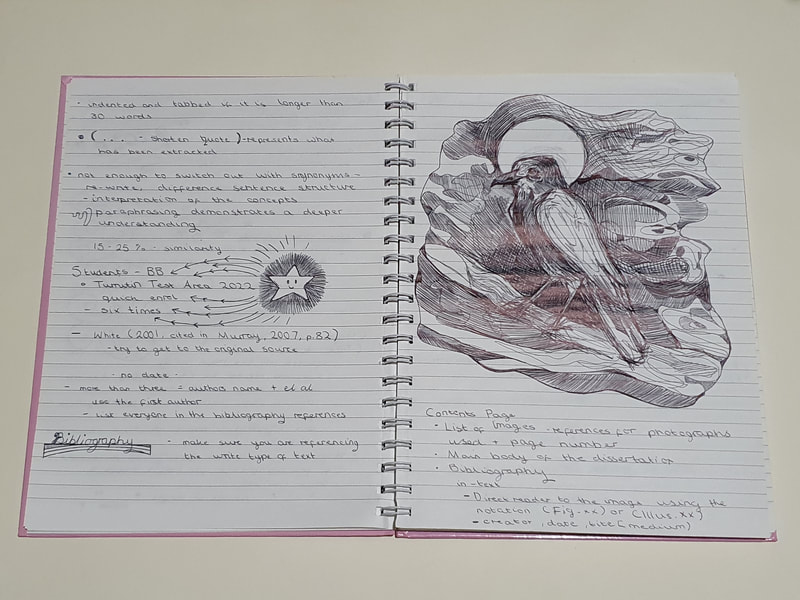 · indented and tabbed if it is longer than
30 words
• (... - shorten quote) - represents what
has been extracted
• not enough to switch out with synonyms -
re-write, difference sentence structure
- interpretation of the concepts
paraphrasing demonstrates a deeper
understanding
15-25% - similarity
Students - BB
• Turnitin Test Area 2022
quick enrol
- six times
- White (2001, cited in Murray, 2007, p.82)
- try to get to the original source
· no date ·
- more than three = authors name + et al
use the first author
- list everyone in the bibliography references
Bibliography
• make sure you are referencing
the write type of text
Contents Page
• List of Images - references for photographs
used + page number
• Main body of the dissertation
• Bibliography
in-text
- Direct reader to the image using the
notation (Fig.xx) or (Illus.xx)
- creator, date, title [medium]